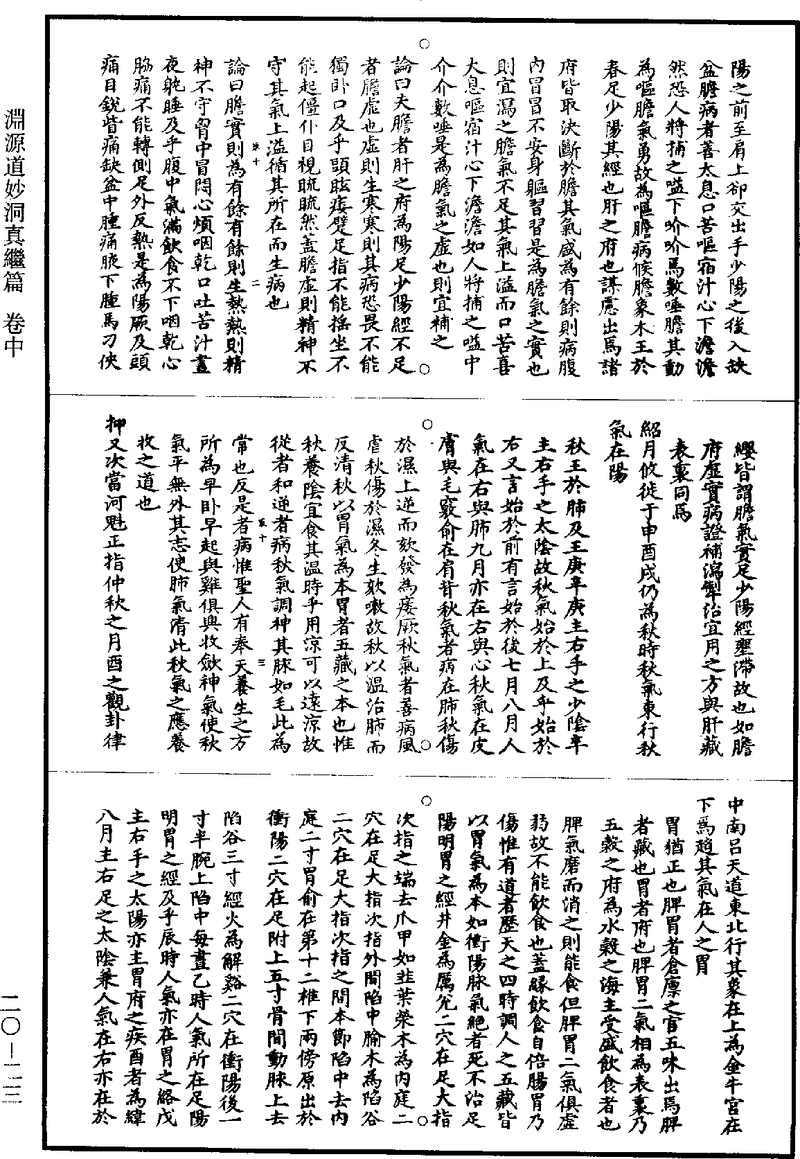 淵源道妙洞真繼篇　卷中
二〇—二三
陽之前至肩上卻交出手少陽之後入缺
盆膽病者善太息口苦嘔宿汁心下澹澹
然恐人將捕之嗌下吤吤焉數唾膽其動
為嘔膽氣勇故為嘔膽病候膽象木王於
春足少陽其經也肝之府也謀慮出焉諸
府皆取決斷於膽其氣盛為有餘則病腹
內冒冒不安身軀習習是為膽氣之實也
則宜瀉之膽氣不足其氣上溢而口苦喜
大息嘔宿汁心下澹澹如人將捕之嗌中
介介數唾是為膽氣之虛也則宜補之
論曰夫膽者肝之府為陽足少陽經不足
者膽虛也虛則生寒寒則其病恐畏不能
獨臥口及乎頭眩痿躄足指不能搖坐不
能起僵仆目視䀮䀮然蓋膽虛則精神不
守其氣上溢循其所在而生病也
論曰膽實則為有餘有餘則生熱熱則精
神不守胷中冒悶心煩咽乾口吐苦汁晝
夜躭睡及乎腹中氣滿飲食不下咽乾心
脇痛不能轉側足外反熱是為陽厥及頭
痛目銳眥痛缺盆中腫痛腋下腫馬刀俠
纓皆謂膽氣實足少陽經壅滯故也如膽
府虛實病證補瀉掣治宜用之方與肝藏
表裏同焉
紹月攸徙于申酉戌仍為秋時秋氣東行秋
氣在陽
秋王於肺及王庚辛庚主右手之少陰辛
主右手之太陰故秋氣始於上及乎始於
右又言始於前有言始於後七月八月人
氣在右與肺九月亦在右與心秋氣在皮
膚與毛竅俞在肩背秋氣者病在肺秋傷
於濕上逆而欬發為痿厥秋氣者善病風
瘧秋傷於濕冬生欬嗽故秋以溫治肺而
反清秋以胃氣為本胃者五藏之本也惟
秋養陰宜食其溫時乎用涼可以遠涼故
從者和逆者病秋氣調神其脉如毛此為
常也反是者病惟聖人有奉天養生之方
所為早卧早起與雞俱與收斂神氣使秋
氣平無外其志使肺氣清此秋氣之應養
收之道也
抑又次當河魁正指仲秋之月酉之觀卦律
中南呂天道東北行其象在上為金牛宮在
下為趙其氣在人之胃
胃猶正也脾胃者倉廩之官五味出焉脾
者藏也胃者府也脾胃二氣相為表裏乃
五穀之府為水穀之海主受盛飲食者也
脾氣磨而消之則能食但脾胃二氣俱虛
弱故不能飲食也蓋緣飲食自倍腸胃乃
傷惟有道者歷天之四時調人之五藏皆
以胃氣為本如衝陽脉氣絕者死不治足
陽明胃之經井金為厲兊二穴在足大指
次指之端去爪甲如韭葉滎木為內庭二
穴在足大指次指外間陷中腧木為陷谷
二穴在足大指次指之間本節陷中去內
庭二寸胃俞在第十二椎下兩傍原出於
衝陽二穴在足附上五寸骨間動脉上去
陷谷三寸經火為解谿二穴在衝陽後一
寸半腕上陷中每晝乙時人氣所在足陽
明胃之經及乎辰時人氣亦在胃之絡戊
主右手之太陽亦主胃府之疾酉者為緯
八月主右足之太陰兼人氣在右亦在於